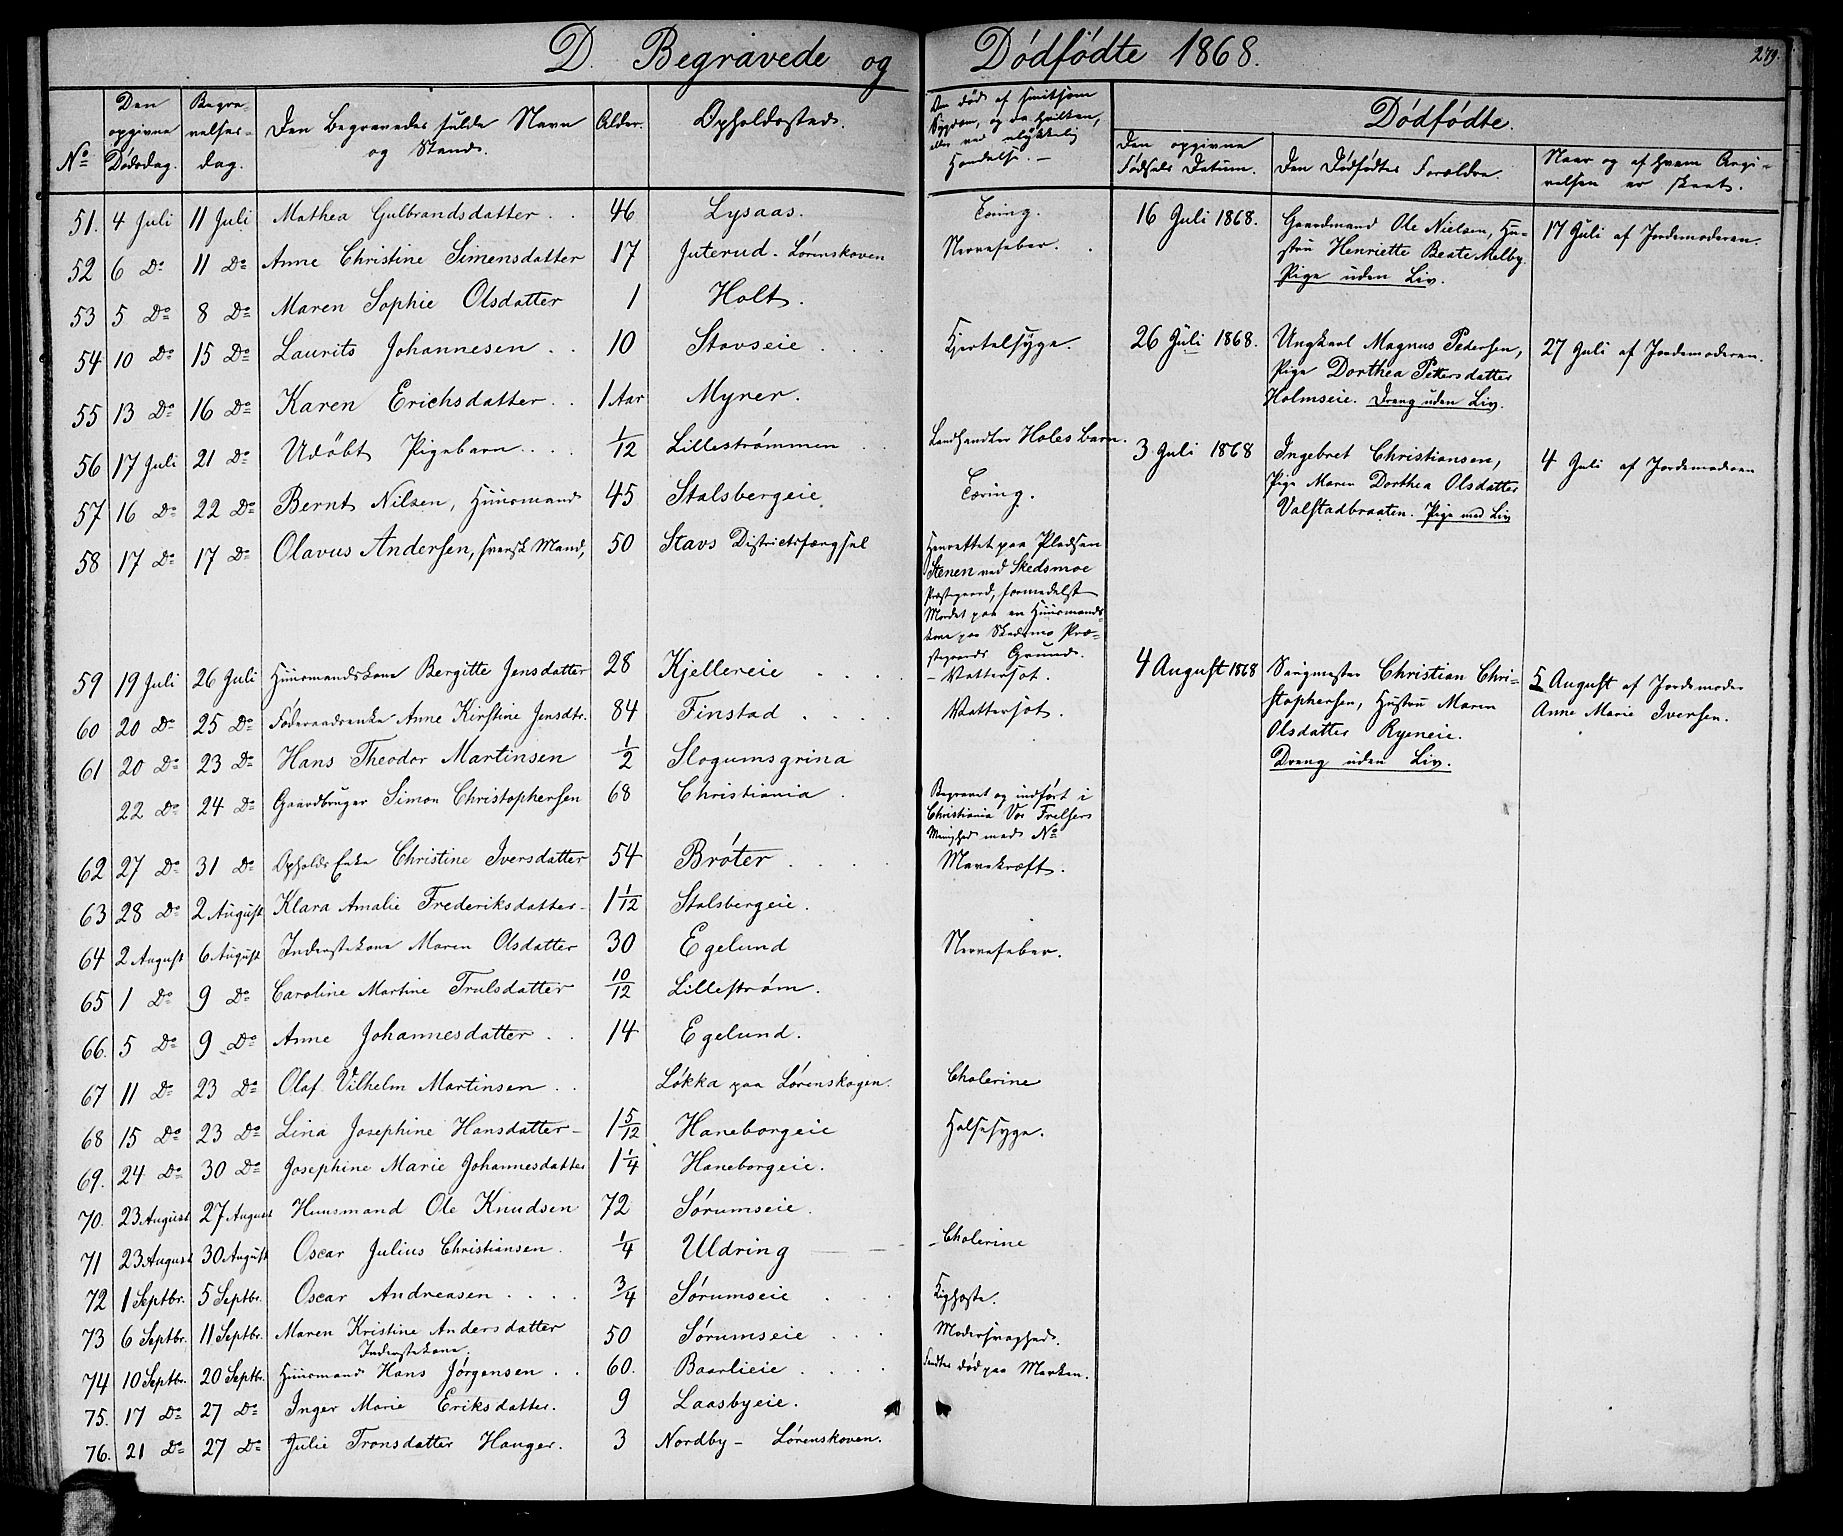 D. Begravede og Dødfødte 1868. 279.
No
Den opgivne Dødsdag.
Begravelses-dag.
Den Begravedes fulde Navn og Stand.
Alder.
Opholdssted.
Om død af smitsom Sygdom, og da hvilken, eller ved ulykkelig Hændelse. -
Dødfødte.
Den opgivne Fødsels Datum.
Den Dødfødtes Forældre.
Naar og af hvem Angivelsen er skeet.
51. 4 Juli 11 Juli Mathea Gulbrandsdatter . . 46 Lysaas. Tæring.
52 6 Do 11 Do Anne Christine Simensdatter 17 Juterud. Lørenskoven Nervefeber. .
53 5 Do 8 Do Maren Sophie Olsdatter 1 Holt.
54 10 Do 15 Do Laurits Johannesen . . 10 Stavseie . . Kjertelsyge.
55 13 Do 16 Do Karen Erichsdatter . . 1 Aar Myrer.
56 17 Juli 21 Do Udöbt Pigebarn . . . 1/12 Lillestrømmen . Landhandler Holes Barn.
57 16 Do 22 Do Bernt Nilsen, Huusmand 45 Stalsbergeie Tæring.
58 17 Do 17 Do Olavus Andersen, svensk Mand, 50 Stavs Districtsfængsel Henrettet paa Pladsen
Stenen ved Skedsmoe
Præstegaard, formedelst
Mordet paa en Huusmands
kone paa Skedsmo Præ-
stegaards Grund.
59 19 Juli 26 Juli Huusmandskone Bergitte Jensdatter 28 Kjellereie . . . . - Vattersot.
60 20 Do 25 Do Føderaadsenke Anne Kirstine Jensdtr. 84 Finstad . . . . Vattersot.
61 20 Do 23 Do Hans Theodor Martinsen 1/2 Slogumsgrina
22 Do 24 Do Gaardbruger Simon Christophersen 68 Christiania . Begravet og indført i
Christiania Vor Frelsers
Menighed med No
62 27 Do 31 Do Opholds Enke Christine Iversdatter 54 Brøter . . . . Mavekræft.
63 28 Do 2 August Klara Amalie Frederiksdatter - 1 1/12 Stalsbergeie.
64 2 August 6 August Inderstekone Maren Olsdatter 30 Egelund Nervefeber.
65 1 Do 9 Do Caroline Martine Trulsdatter 10/12 Lillestrøm.
66. 5 Do 9 Do Anne Johannesdatter . . 14 Egelund.
67 11 Do 23 Do Olaf Vilhelm Martinsen . . Løkka paa Lørenskogen. Cholerine
68 15 Do 23 Do Lina Josephine Hansdatter - 1 5/12 Haneborgeie Halssyge.
69. 24 Do 30 Do Josephine Marie Johannesdatter 1 1/4 Haneborgeie.
70. 23 August 27 August Huusmand Ole Knudsen 72 Sørumseie.
71 23 August 30 August Oscar Julius Christiansen . 1/4 Uldring - Cholerine
72 1 Septbr. 5 Septbr. Oscar Andreasen . . . . 3/4 Sørumseie . . . Kighoste.
73 6 Septbr. 11 Septbr. Maren Kristine Andersdatter 50 Sørumseie . . . Modersvaghed.
Inderstekone.
74 10 Septbr. 20 Septbr. Huusmand Hans Jørgensen . . 60. Baarlieie . . . . Funden død paa Marken.
75. 17 Do 27 Do Inger Marie Eriksdatter. 9 Laasbyeie.
76. 21 Do 27 Do Julie Tronsdatter Hauger. 3 Nordby - Lørenskoven.
16 Juli 1868. Gaardmand Ole Nielsen, Hu- 17 Juli af Jordemoderen.
stru Henriette Beate Melby.
Pige uden Liv.
26 Juli 1868. Ungkarl Magnus Pedersen, 27 Juli af Jordemoderen.
Pige Dorthea Pettersdatter
Holmseie. Dreng uden Liv.
3 Juli 1868 Ingebret Christiansen, 4 Juli af Jordemoderen
Pige Maren Dorthea Olsdatter
Valstadbraaten. Pige med Liv
4 August 1868 Christian Chri- 5 August af Jordemoder
stophersen, Hustru Maren Anne Marie Iversen.
Olsdatter Ryeneie.
Dreng uden Liv.